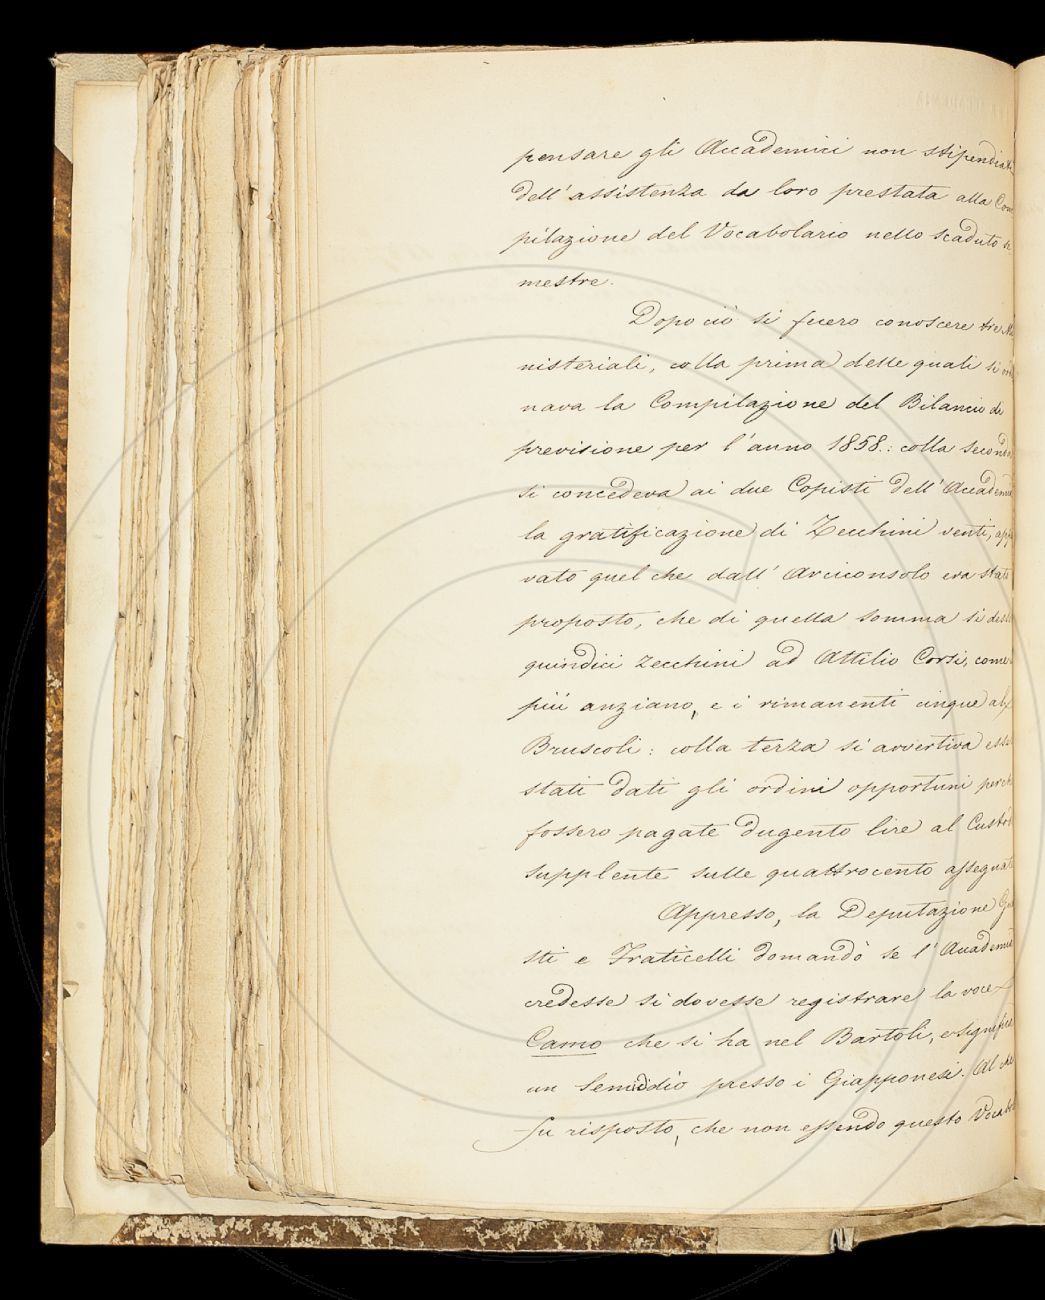 pensare gli Accademici non stipendiati
dell'assistenza da loro prestata alla Com
pilazione del Vocabolario nello scaduto se
mestre.
Dopo ciò si fecero conoscere tre Mi
nisteriali, colla prima delle quali si ordi
nava la Compilazione del Bilancio di
previsione per l'anno 1858.: colla seconda
si concedeva ai due Copisti dell'Accademia
la gratificazione di Zecchini venti, appro
vato quel che dall'Arciconsolo era stato
proposto, che di quella somma si desse
quindici zecchini ad Attilio Corsi, come
più anziano, e i rimanenti cinque al
Bruscoli: colla terza si avvertiva esser
stati dati gli ordini opportuni perchè
fossero pagate dugento lire al Custode
supplente sulle quattrocento assegnate
Appresso, la Deputazione Gu
sti e Fraticelli domandò se l'Accademia
credesse si dovesse registrare la voce
Camo che si ha nel Bartoli, e significa
un Semiddio presso i Giapponesi. Al che
fu risposto, che non essendo questo Vocabo